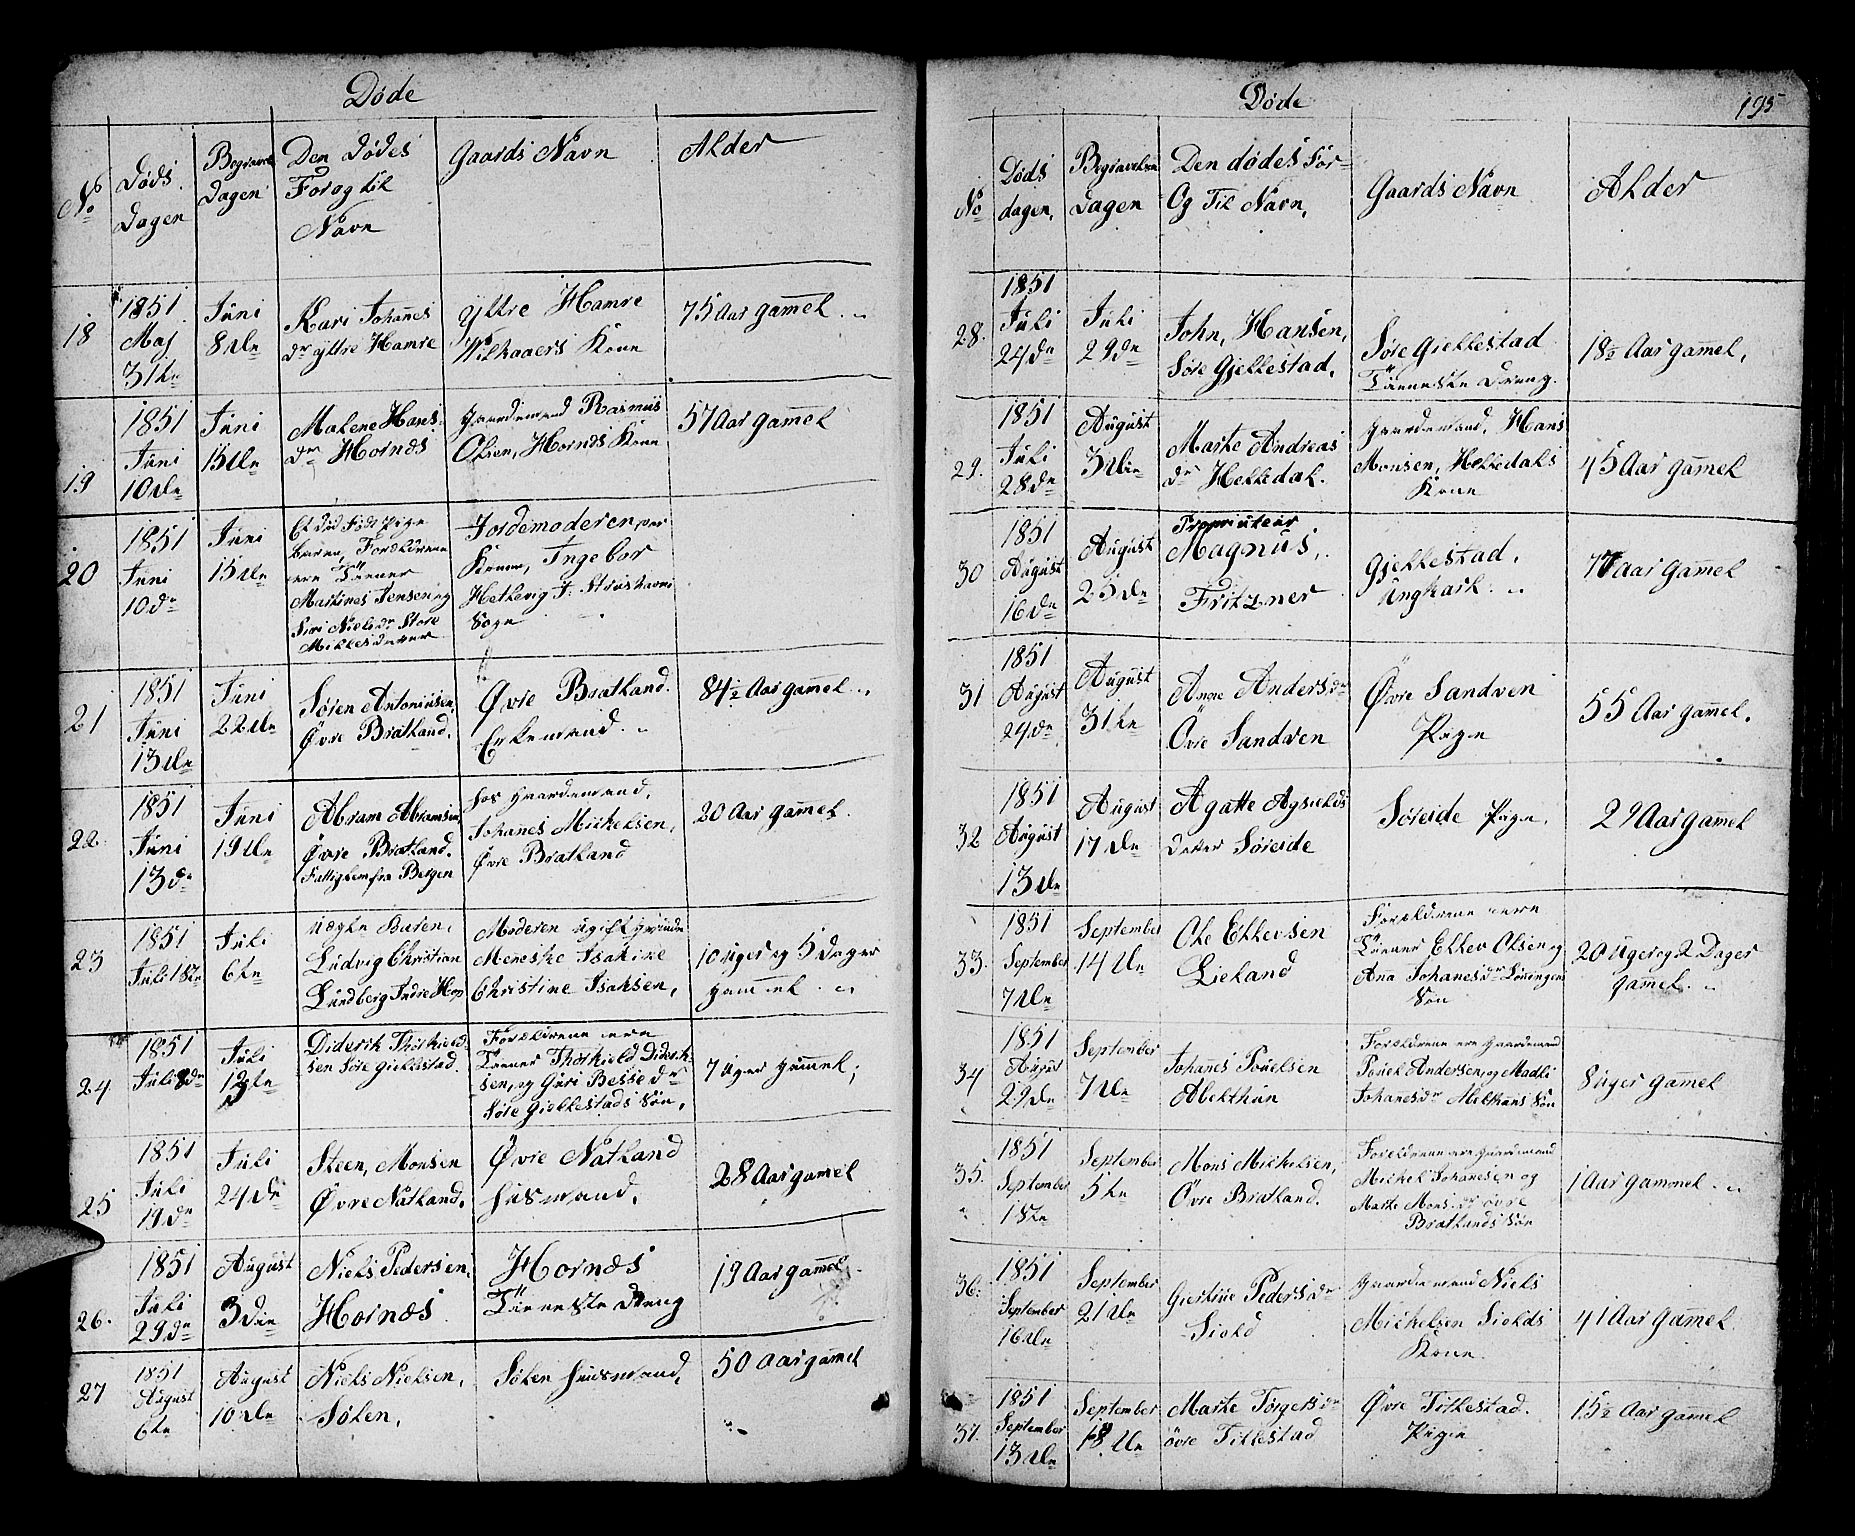 Døde
No
Døds Dagen
Begravels Dagen
Den Dødes For og til Navn
Gaards Navn
Alder
18
1851 Maj 31te
Juni 8de
Kari Johannes dr yttre Hamre
Yttre Hamre Kone
75 Aar gammel
19
1851 Juni 10de
Juni 15de
Malene Hans dr Hornæs
Gaardmand Rasmus Olsen, Hornæs Kone
57 Aar gammel
20
1851 Juni 10de
Juni 15de
Et død Født Pige
Barn, Forældrene
ere Tiener
Martines Jensen og
Siri Niels dr Store
Jordemoderen
Ingebor
Sogn
21
1851 Juni 13de
Juni 22de
Søren Antoniusen, Øvre Bratland.
Øvre Bratland.
84½ Aar gammel
22
1851 Juni 13de
Juni 19de
Abram Abramsen
Øvre Bratland.
Fattiglem fra Bergen
hos Gaardemand,
Johanes Mickelsen,
Øvre Bratland
20 Aar gammel.
23
1851 Juli 1ste
Juli 6te
Uægte Baren,
Ludvig Christian
Lundberg Indre Hop
Moderen Ugift Qvinde
Meneske Isakine
Christine Isaksen,
10 Uger og 5 Dager gammel
24
1851 Juli 8de
Juli 13de
Diderik Thorkield-
sen Søre Gielkestad.
Forældrene ere
Tiener Thorkield Diderik-
sen, og Guri Besse dr
Søre Gielkestads Søn,
7 Uger gammel;
25
1851 Juli 19de
Juli 24de
Steen, Monsen
Øvre Natland,
Øvre Natland
Husmand,
28 Aar gamel
26.
1851 Juli 29de
August 3die
Niels Pedersen,
Hornæs
Hornæs
Tieneste dreng
19 Aar gammel
27
1851 August 6te
August 10de
Niels Nielsen,
Sølen,
Sølen Husmand,
50 Aar gamel
Døde
195
No
Døds dagen,
Begravelsens Dagen
Den dødes For- Og Til Navn,
Gaards Navn
Alder
28.
1851 Juli 24de
Juli 29de
John, Hansen,
Søre Gjellestad,
Søre Giellestad
Tieneste Dreng.
18½ Aar gamel,
29.
1851 Juli 28de
August 3die
Marte Andreas
dr Helledal.
Gaardemand, Hans
Monsen, Helledals
Kone
45 Aar gammel
30
1851 August 16de
August 25de
Proprieteir
Magnus,
Fritzner
Gjellestad,
Ungkarl.
77 Aar gammel
31
1851 August 24de
August 31te
Anne Anders dr
Øvre Sandven
Øvre Sandven
Pige
55 Aar gammel.
32
1851 August 13de
August 17de
Agatte
Datter Søreide
Søreide Pige,
29 Aar gamel
33.
1851 September 7de
September 14de
Ole Ellevsen
Lieland
Forældrene ere
Tiener Ellev Olsen og
Ana Johanes dr
Søn
20 Uger og 2 Dager
gammel.
34
1851 August 29de
September 7de
Johannes Pouelsen
Forældrene ere Gaardemand
Pouel Andersen, og Madli
Johanes dr Søn
8 Uger gammel
35.
1851 September 1ste
September 5te
Mons Mickelsen,
Øvre Bratland.
Forældrene ere Gaardemand
Mickel Johanesen og
Marte Mons dr øvre
Bratlands Søn
1 Aar gammel
36.
1851 September 16de
September 21de
Giertine Peders dr
Siold
Gaardemand Niels
Mickelsen Siolds
Kone.
41 Aar gammel
37.
1851 September 13de
September 18de
Marte Torgers dr
øvre Titlestad
Øvre Titlestad.
Pige
15½ Aar gammel